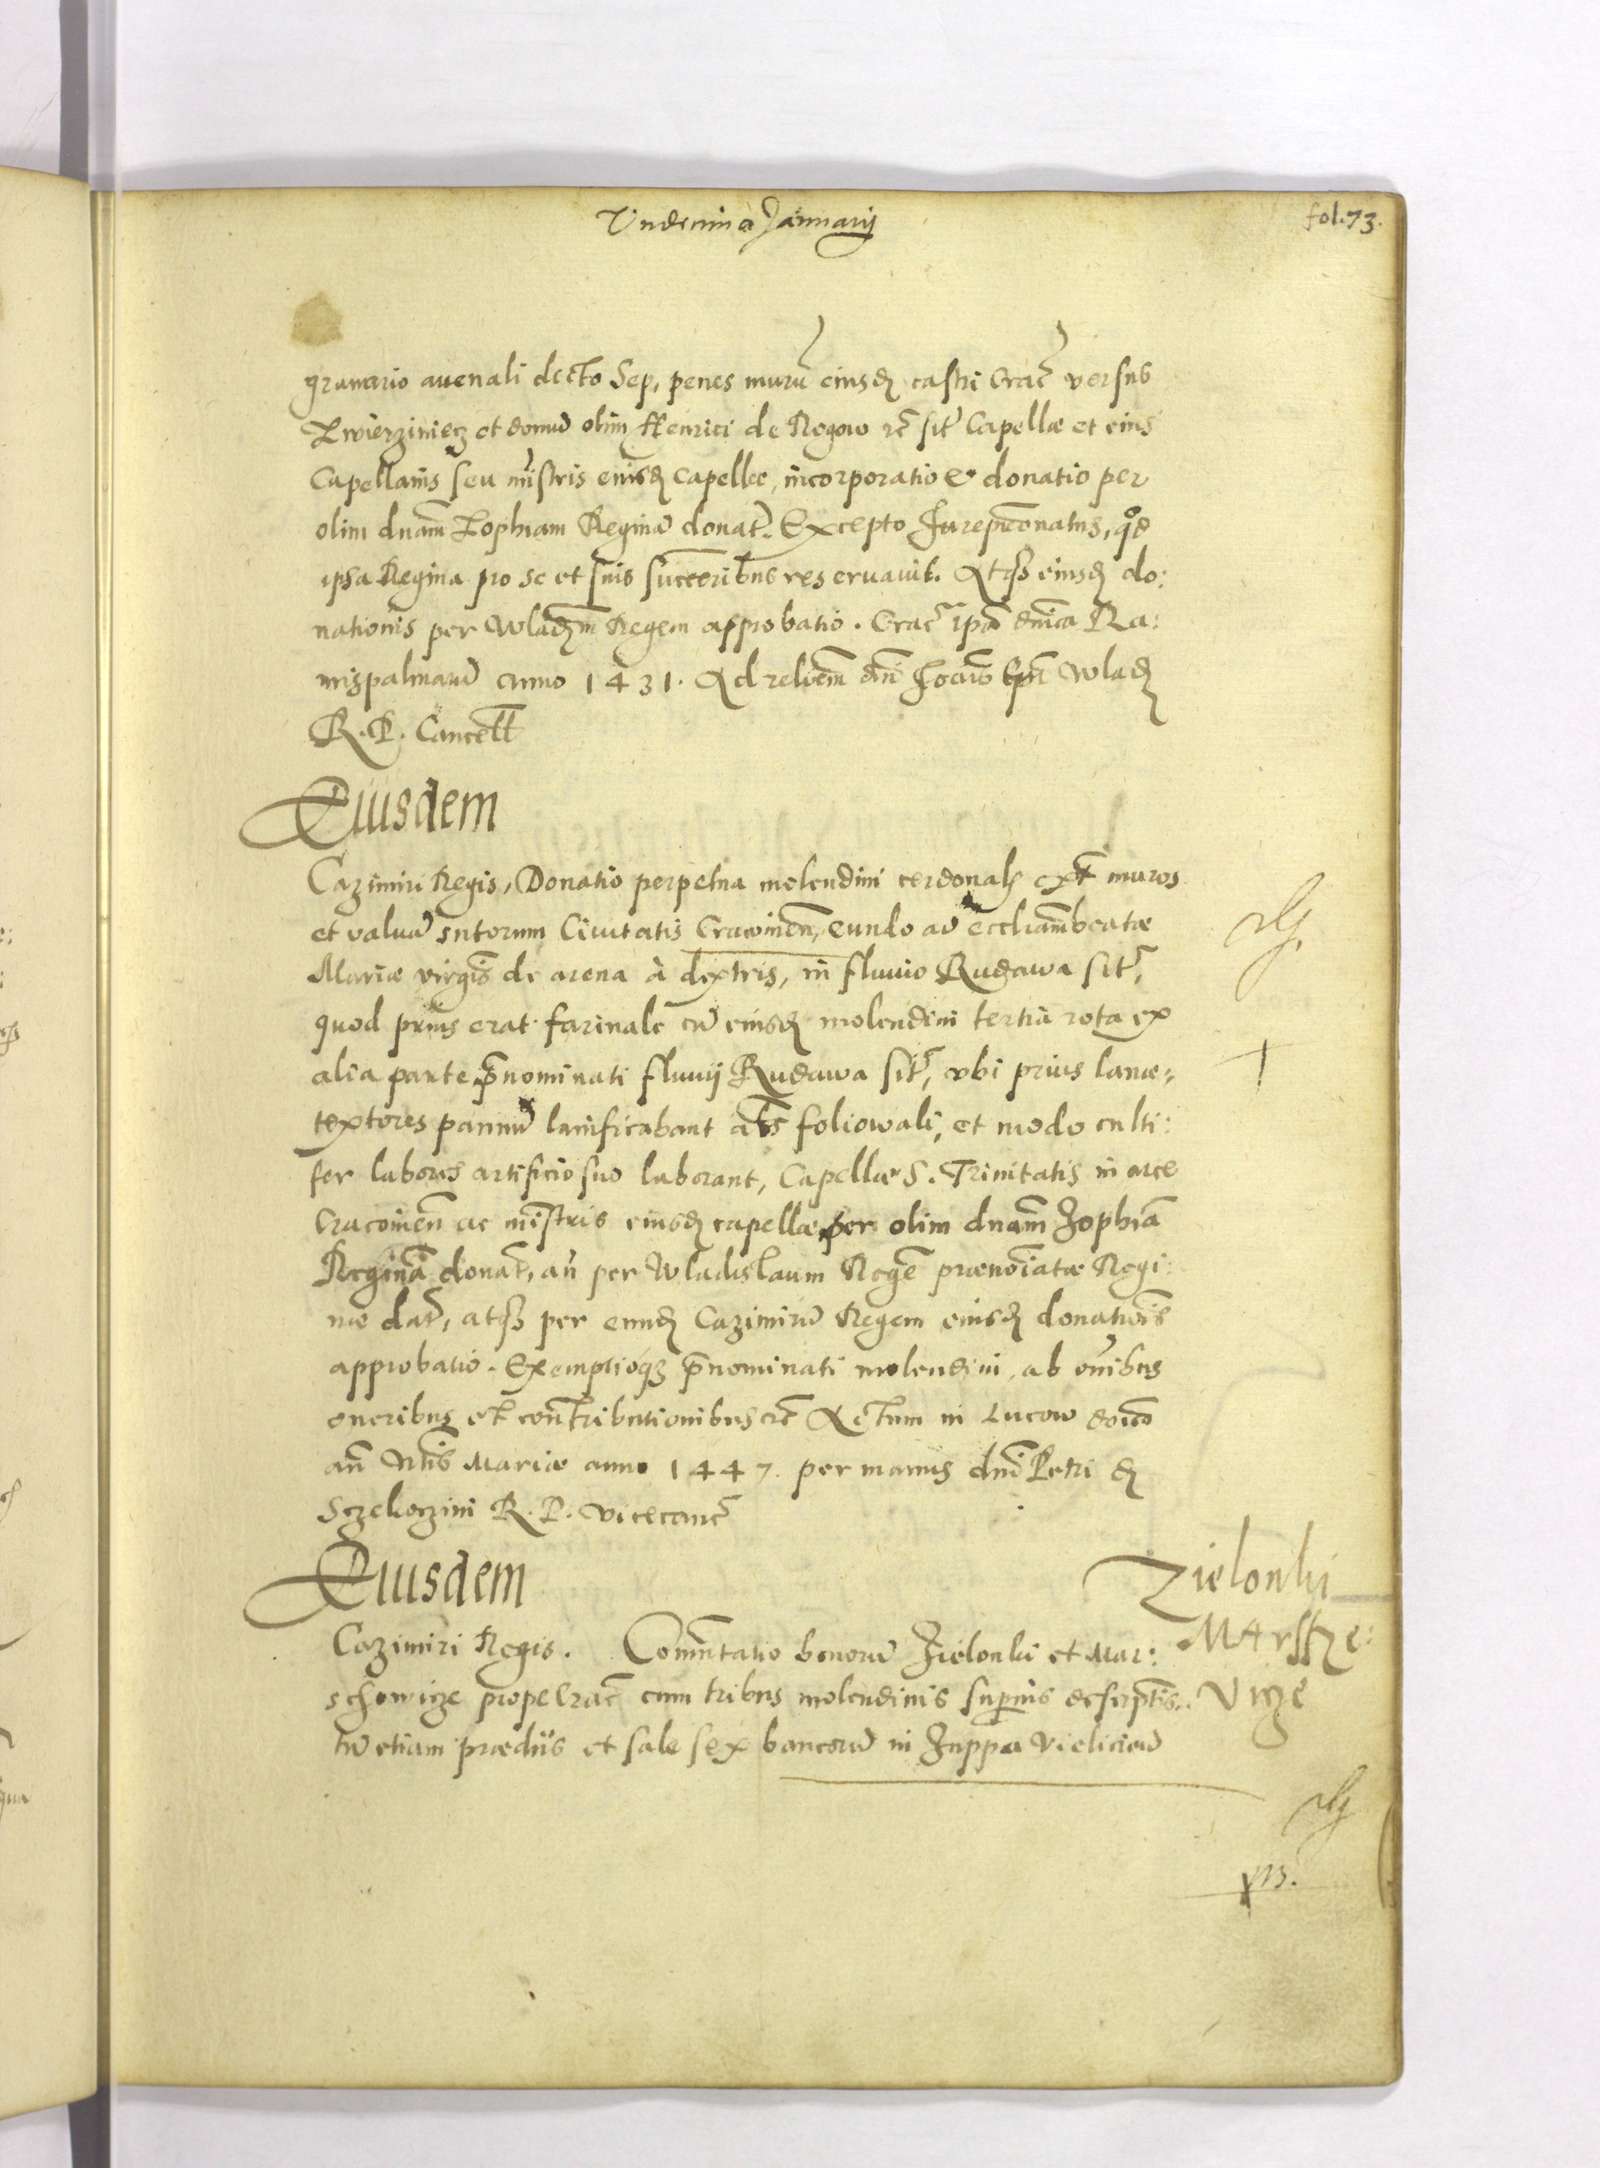 Undecima Januarij
fol. 73.
granario auenali dicto Sep, penes murũ eiusdẽ castri Crac̃ versus
Zwierziniecz et domũ olim Henrici de Rogow rc̃ sit̃ Capellæ et eius
Capellanis seu mĩstris eiusdẽ capellæ, incorporatio et donatio per
olim dnam̃ Zophiam Reginã donat̃. Excepto Jurepatronatus, quod
ipsa Regina pro se et suis succeribus reseruauit. Atq̃ eiusdẽ do:
nationis per Wladm̃ Regem approbatio. Crac̃ ipa dnica Ra:
mispalmarũ anno 1431. Ad relõem dñi Joañis Epi Wladẽ
R. P. Cancell
Eiusdem
Cazimiri Regis, Donatio perpetua molendini cerdonalis ext̃ muros
et valuã sutorum Ciuitatis Cracouien̄, eundo ad eccliam beatæ
Mariæ virgis̃ de arena à dextris, in fluuio Rudawa sit̃,
quod prius erat farinale cũ eiusdẽ molendini tertia rota ex
alia parte p̃nominati fluuij Rudawa sit̃, vbi prius lanæ-
textores pannũ lanificabant al̃s foliowali, et modo culti:
fer labores artificio suo laborant, Capellæ S. Trinitatis in arce
Cracouien̄ ac mĩstris eiusdẽ capellæ per olim dnam̃ Zophiã
Reginã donat̃, añ per Wladislaum Regẽ prænoĩatæ Regi:
næ dat̃, atq̃ per eundẽ Cazimirũ Regem eiusdẽ donatiõis
approbatio. Exemptioq̃ p̃nominati molendini, ab oĩbus
oneribus et contributionibus rc̃ Actum in Lucow doĩco
añ Ntis̃ Mariæ anno 1447. per manus dñi Petri dẽ
Sczekoczini R. P. Vicecanc̃
Eiusdem
Zielonki
Cazimiri Regis. Comutatio bonorũ Zielonki et Mar:
Marssze:
schowicze prope Crac̃ cum tribus molendinis superius descriptis.
Vicze
cũ etiam prædiis et sale sex bancorũ in Zuppa Vieliciend